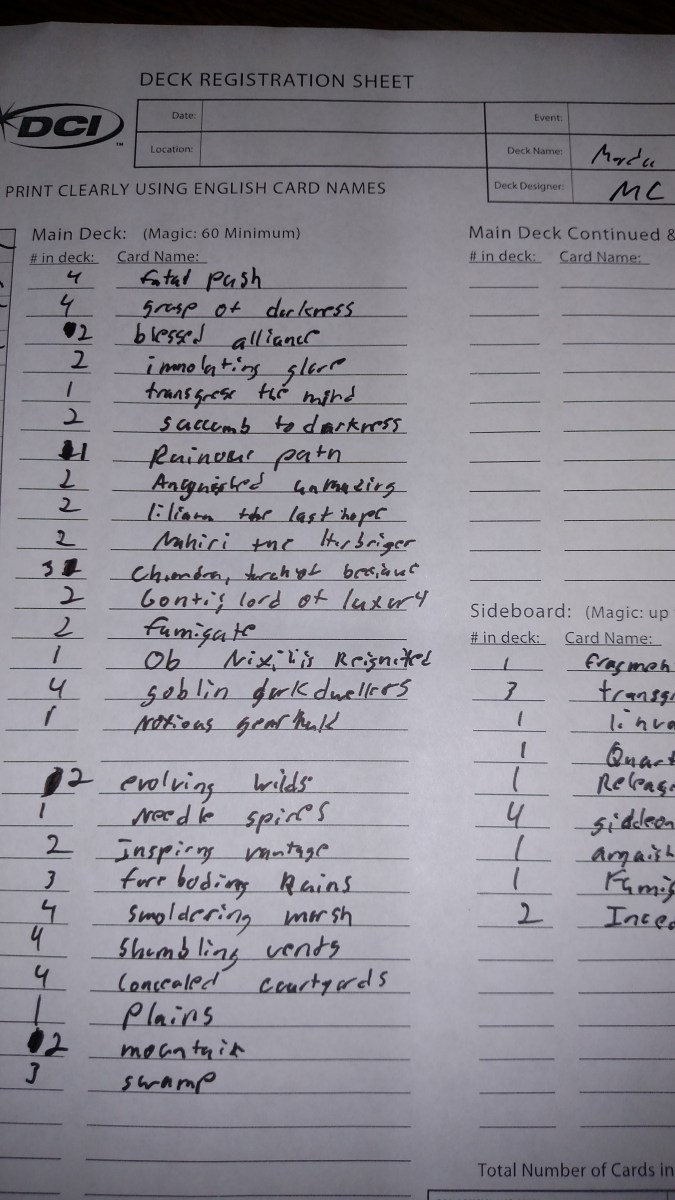 DECK REGISTRATION SHEET
DCI
TM
Date:
Event:
Location:
Deck Name: Mardu
Deck Designer: MC
PRINT CLEARLY USING ENGLISH CARD NAMES
Main Deck: (Magic: 60 Minimum)
# in deck: Card Name:
4 fatal push
4 grasp of darkness
2 blessed alliance
2 immolating glare
1 transgress the mind
2 saccumb to darkness
1 Ruinous path
2 Anguished unmaking
2 liliana the last hope
2 Nahiri the Harbriger
3 Chandra, torch of
2 Gontis lord of luxury
2 fumigate
1 Ob Nixilis Reignited
4 goblin dark dwellers
1 Notious gearhulk
2 evolving wilds
1 Needle spires
2 Inspirng vantage
3 foreboding Ruins
4 smoldering marsh
4 Shambling vents
4 Concealed courtyards
1 Plains
2 mountain
3 swamp
Main Deck Continued &
# in deck: Card Name:
Sideboard: (Magic: up
# in deck: Card Name:
1 fragmen
3 transgr
1 linva
1 Quart
1 Release
4 giddeon
1 anguish
1 Fumig
2 Incen
Total Number of Cards in